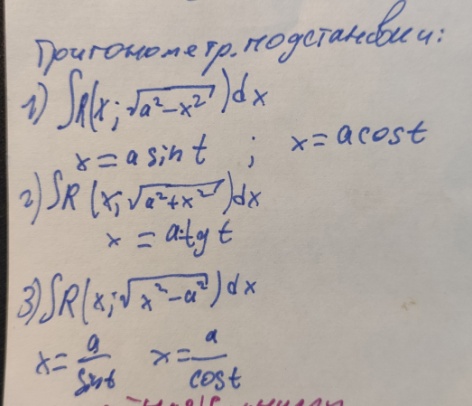 Тригонометр. подстановки:
1) ∫R(x; √a²-x²)dx
x = a sin t ; x = a cos t
2) ∫R(x; √a²+x²)dx
x = a·tg t
3) ∫R(x; √x²-a²)dx
x = a/sin t x = a/cos t